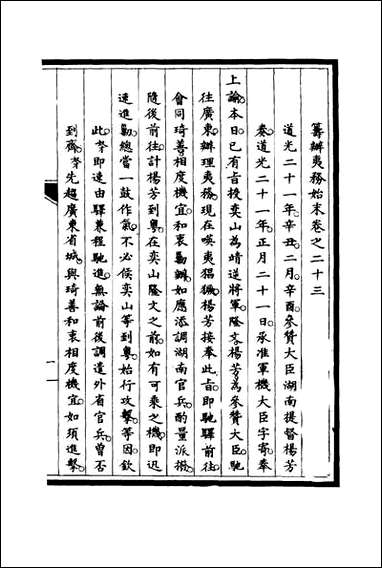 籌辦夷務始末卷之二十三
道光二十一年辛丑二月辛酉參贊大臣湖南提督楊芳
奏道光二十一年正月二十一日承准軍機大臣字寄奉
上諭本日已有旨授奕山為靖逆將軍隆文楊芳為參贊大臣馳
往廣東辦理夷務現在嘆夷猖獗楊芳接奉此旨即馳驛前往
會同琦善相度機宜和衷勦辦如應添調湖南官兵酌量派撥
隨後前往計楊芳到粵在奕山隆文之前如有可乘之機即迅
速進勦總當一鼓作氣不必候奕山等到粵始行攻擊等因欽
此孥即速由驛兼程馳進無論前後調遣外省官兵曾否
到齊孥先趨廣東省城與琦善和衷相度機宜如須進擊